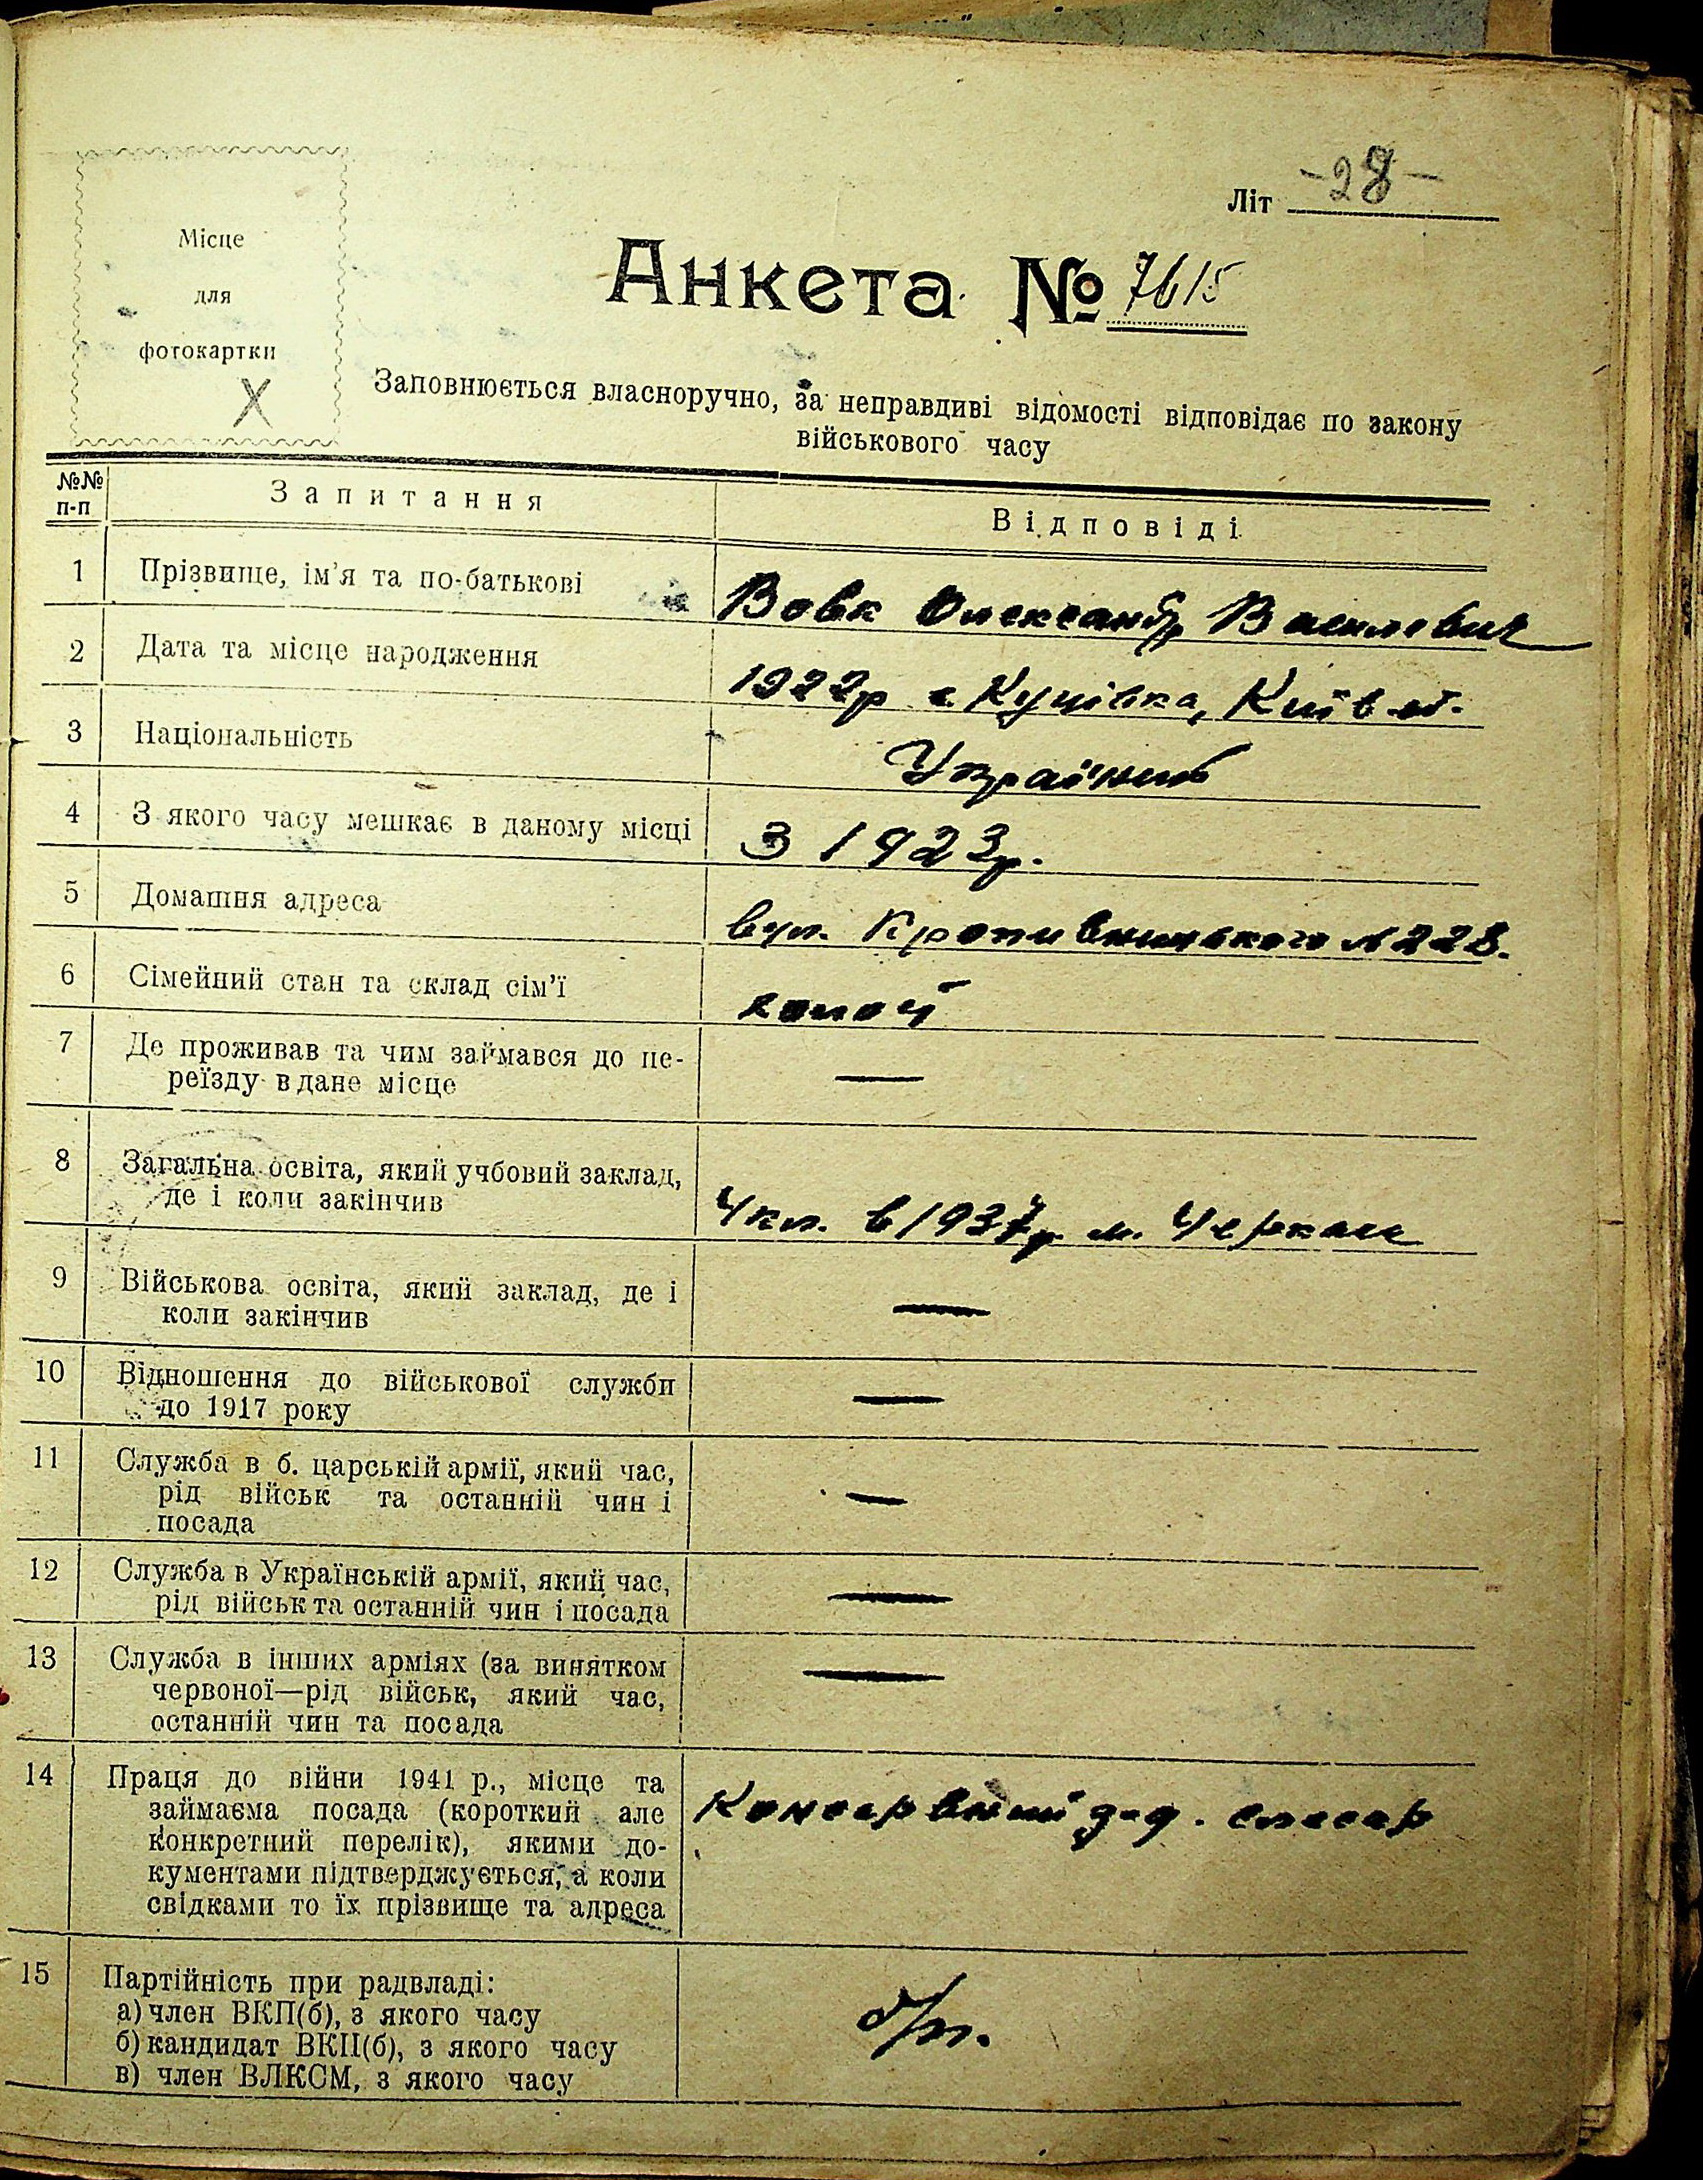 Літ -28-
Місце
для
фотокартки
Х
Анкета № 7615
Заповнюється власноручно, за неправдиві відомості відповідає по закону
військового часу
№№ п-п Запитання Відповіді
1 Прізвище, ім'я та по-батькові Вовк Олександр Василевич
2 Дата та місце народження 1922р с. Куцівка, Київ об.
3 Національність Українець
4 З якого часу мешкає в даному місці З 1923р.
5 Домашня адреса вул. Кропивницького № 228.
6 Сімейний стан та склад сім'ї холост
7 Де проживав та чим займався до пе-
реїзду в дане місце —
8 Загальна освіта, який учбовий заклад,
де і коли закінчив 4 кл. в 1937р. м. Черкаси
9 Військова освіта, який заклад, де і
коли закінчив —
10 Відношення до військової служби
до 1917 року —
11 Служба в б. царській армії, який час,
рід військ та останній чин і
посада —
12 Служба в Українській армії, який час,
рід військ та останній чин і посада —
13 Служба в інших арміях (за винятком
червоної—рід військ, який час,
останній чин та посада —
14 Праця до війни 1941 р., місце та
займаєма посада (короткий але
конкретний перелік), якими до-
кументами підтверджується, а коли
свідками то їх прізвище та адреса Консервний з-д. слесар
15 Партійність при радвладі:
а) член ВКП(б), з якого часу
б) кандидат ВКП(б), з якого часу
в) член ВЛКСМ, з якого часу б/п.